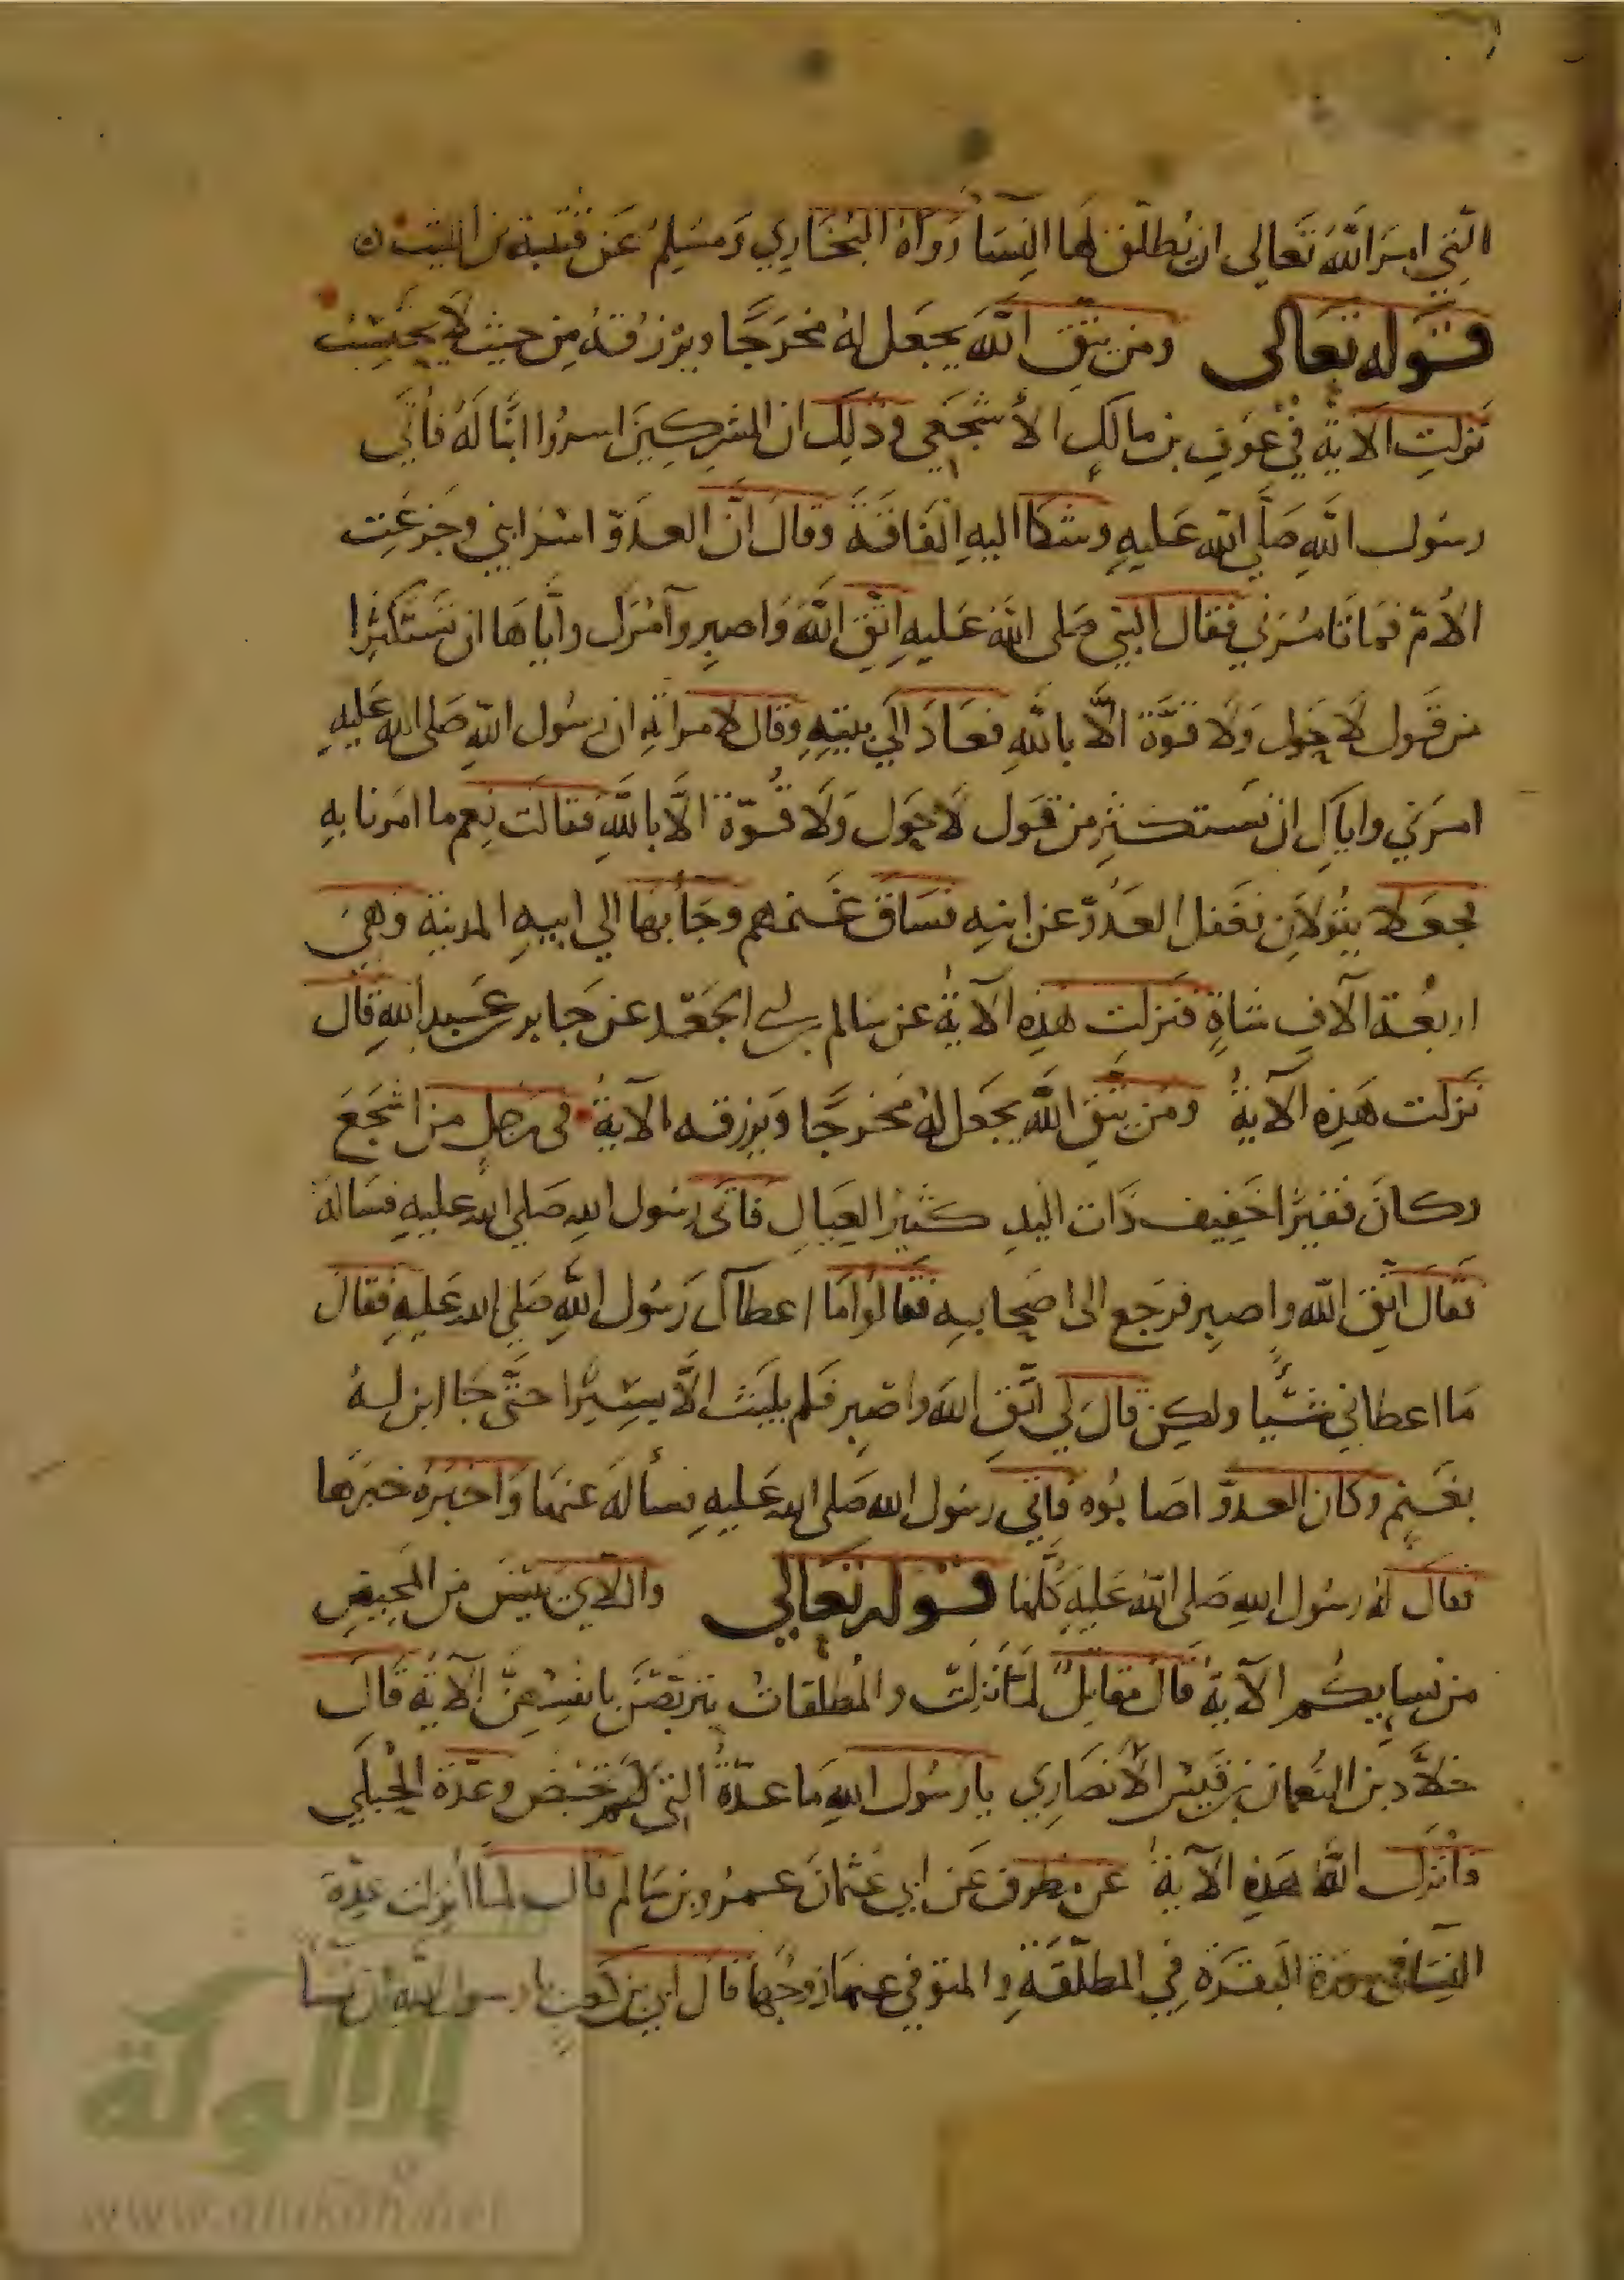 التي امر الله تعالى ان يطلق لها النسا رواه البخاري ومسلم عن قتيبة بن الليث
قوله تعالى ومن يتق الله يجعل له مخرجا ويرزقه من حيث لا يحتسب
نزلت الآية في عوف بن مالك الأشجعي وذلك ان المشركين اسروا ابنا له فأتي
رسول الله صلى الله عليه وشكا اليه الفاقة وقال ان العدو اسر ابني وجزعت
الأم فما تامرني فقال النبي صلى الله عليه اتق الله واصبر وآمرك واياها ان تستكثرا
من قول لا حول ولا قوة الا بالله فعاد الي بيته وقال لامراته ان رسول الله صلى الله عليه
امرني واياك ان نستكثر من قول لا حول ولا قوة الا بالله فقالت نعم ما امرنا به
فجعلا يقولان فغفل العدو عن ابنه فساق غنمهم وجأ بها الي ابيه المدينة وهي
اربعة آلاف شاة فنزلت هذه الآية عن سالم بن ابي الجعد عن جابر بن عبد الله قال
نزلت هذه الآية ومن يتق الله يجعل له مخرجا ويرزقه الآية في رجل من اشجع
وكان فقيرا خفيف ذات اليد كثير العيال فاتى رسول الله صلي الله عليه فساله
فقال اتق الله واصبر فرجع الى اصحابه فقالوا ما اعطاك رسول الله صلي الله عليه فقال
ما اعطاني شيا ولكن قال لي اتق الله واصبر فلم يلبث الا يسيرا حتى جا ابن له
بغنم وكان العدو اصابوه فاتي رسول الله صلى الله عليه فسأله عنها واخبره خبرها
فقال له رسول الله صلى الله عليه كلها قوله تعالي واللآي يئسن من المحيض
من نسايكم الآية قال مقاتل لما نزلت والمطلقات يتربصن بانفسهن الآية قال
خلاد بن النعمان بن قيس الأنصاري يا رسول الله ما عدة التي لم تحض وعدة الحبلي
فأنزل الله هذه الآية عن مطرف عن ابي عثمان عمرو بن سالم قال لما انزلت عدة
النسا في سورة البقرة في المطلقة والمتوفي عنها زوجها قال ابي بن كعب يا رسول الله ان نسا
الألوكة
www.alukah.net